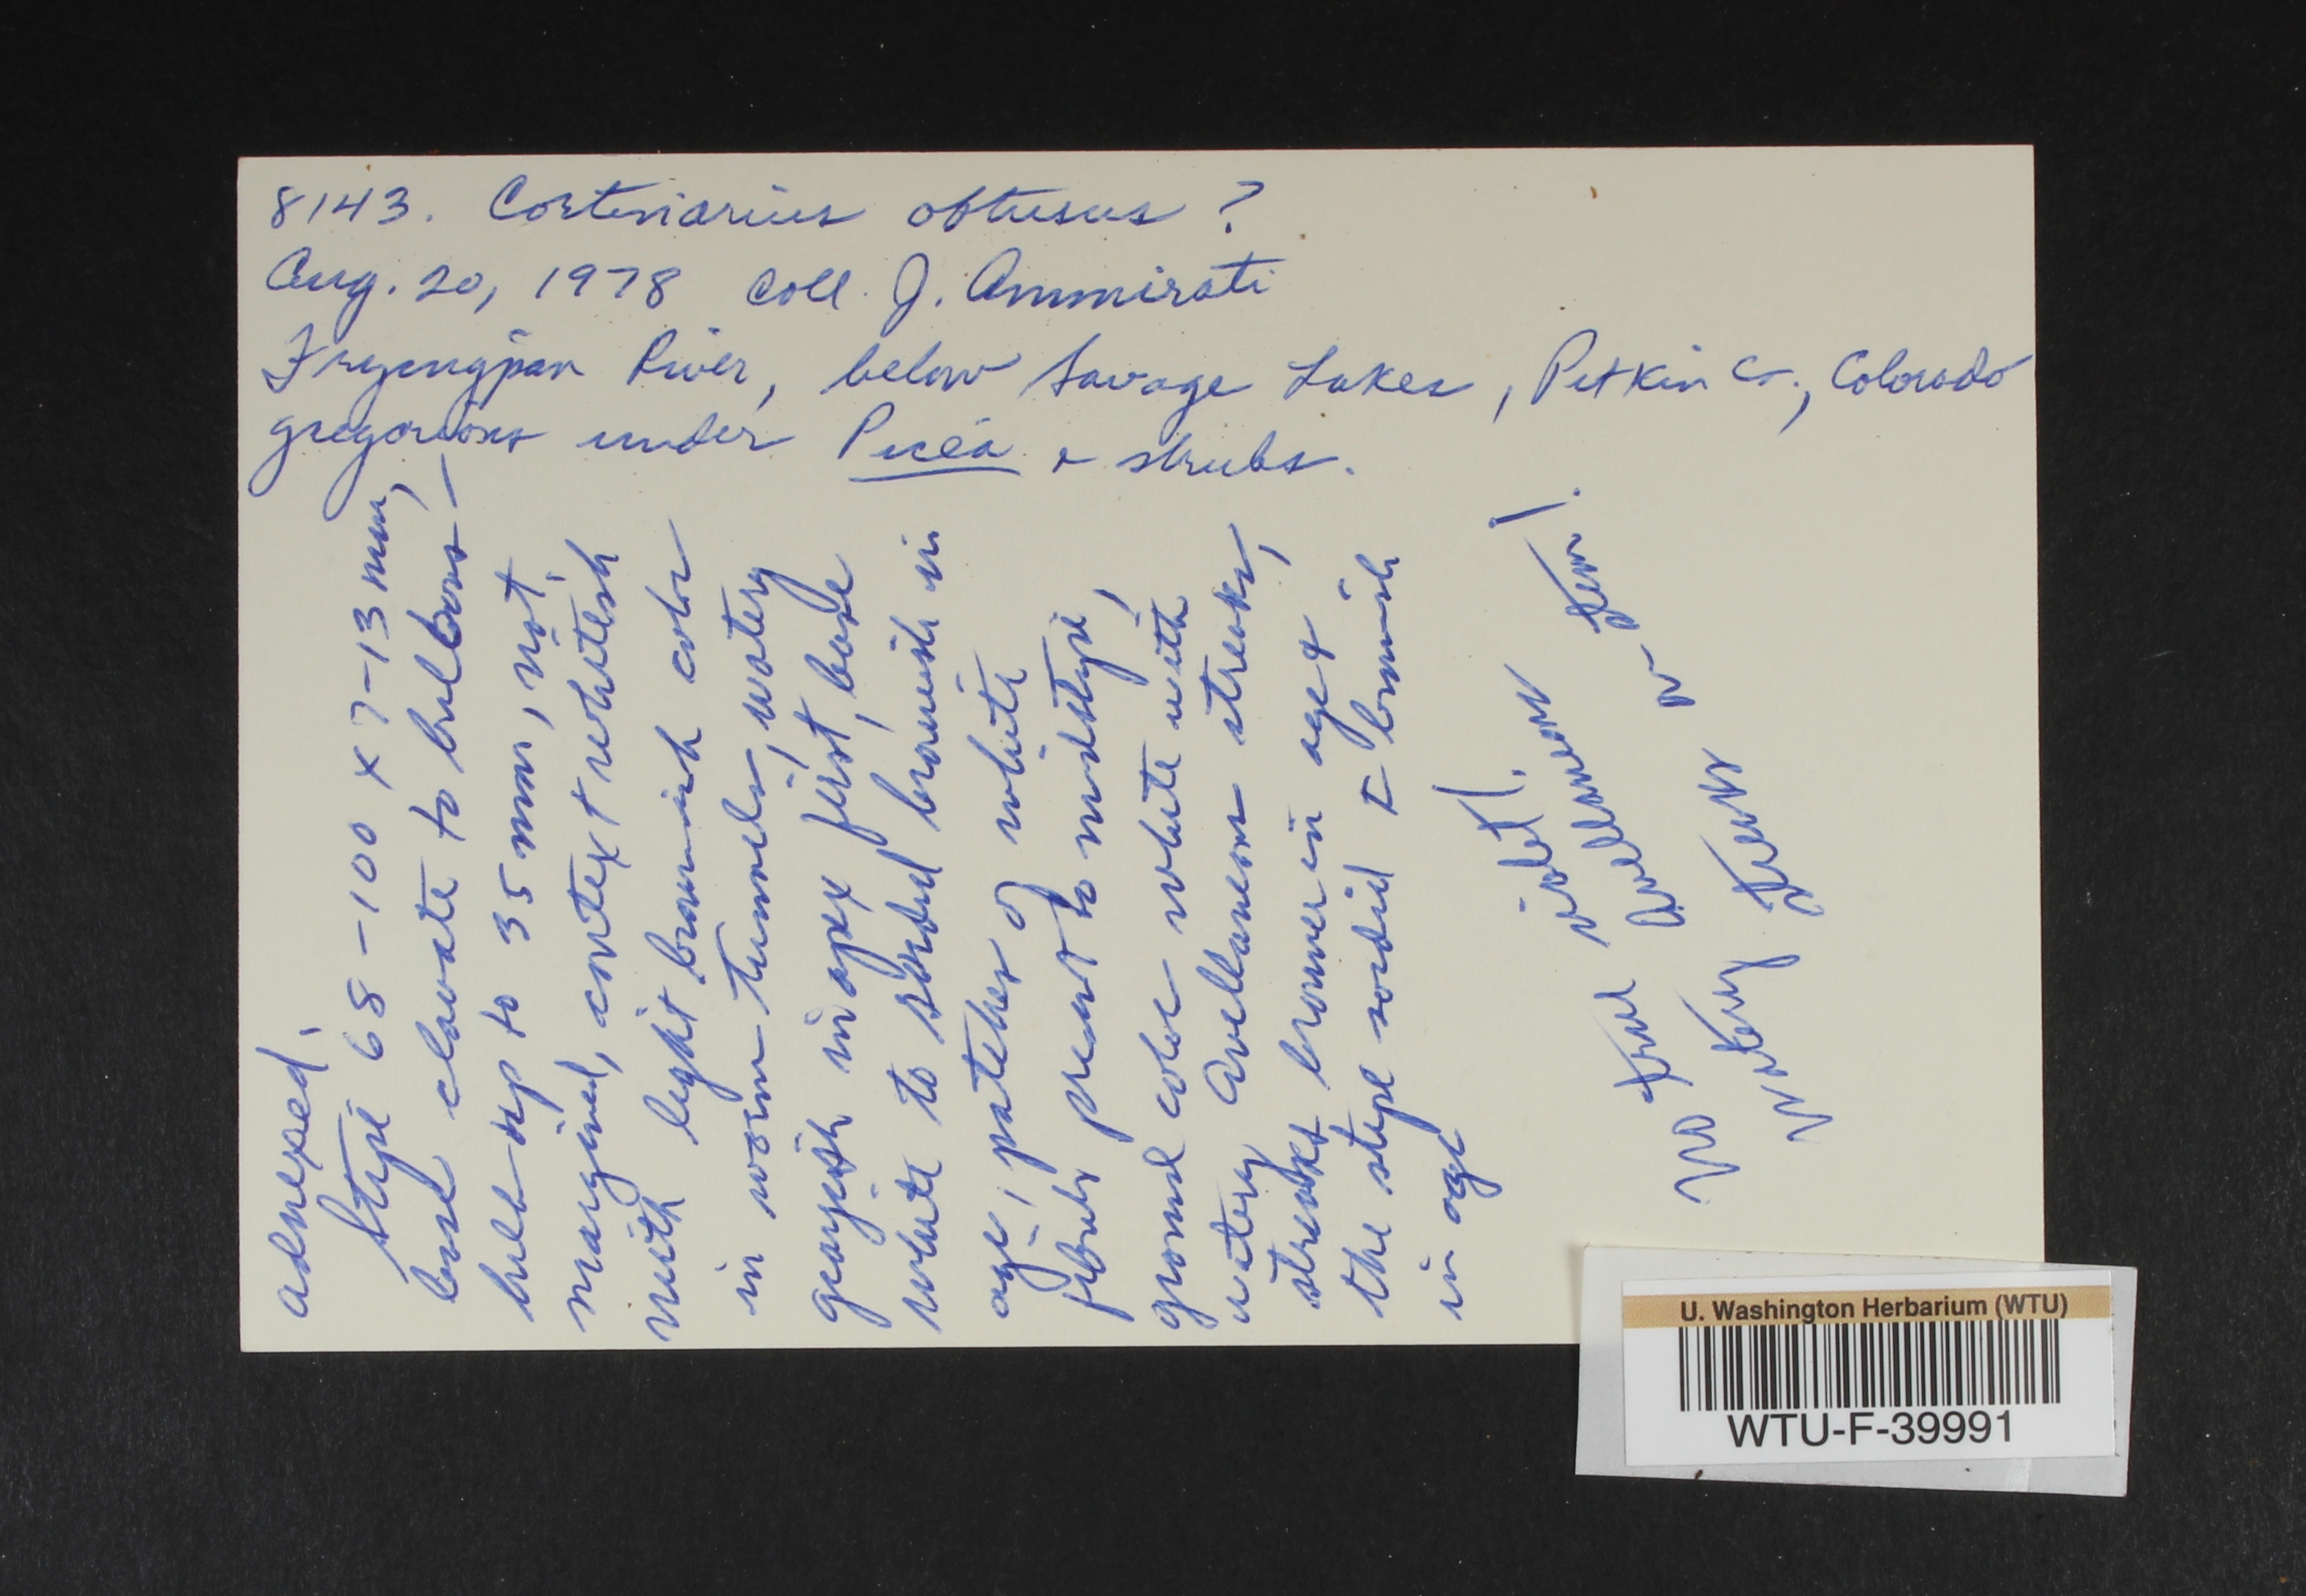 8143. Cortinarius obtusus ?
Aug. 20, 1978 Coll. J. Ammirati
Fryingpan River, below Savage Lakes, Pitkin Co., Colorado
gregarious under Picea & shrubs.
adnexed.
Stipe 68-100 x 7-13 mm,
base clavate to bulbous -
bulb up to 35 mm, not
margined, context whitish
with light brownish color
in worm tunnels, watery
grayish in apex first, base
white to sordid brownish in
age, patches of white
fibrils present to midstipe,
ground color white with
watery avellaneous streaks,
streaks browner in age &
the stipe sordid ± brownish
in age
violet/.
avellaneous
No
watery
U. Washington Herbarium (WTU)
WTU-F-39991